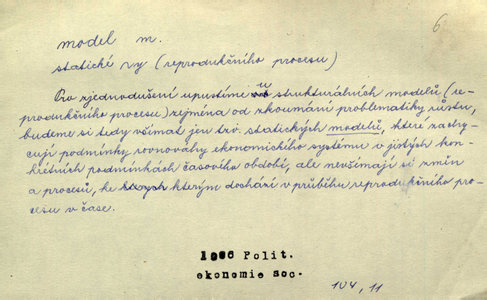 6
model m.
statické vy (reprodukčního procesu)
Pro zjednodušení upustíme u strukturálních modelů (re-
produkčního procesu) zejména od zkoumání problematiky růstu,
budeme si tedy všímat jen tzv. statických modelů, které zachy-
cují podmínky rovnováhy ekonomického systému v jistých kon-
krétních podmínkách časového období, ale nevšímají si změn
a procesů, ke kterým dochází v průběhu reprodukčního pro-
cesu v čase.
1966 Polit.
ekonomie soc.
104, 11